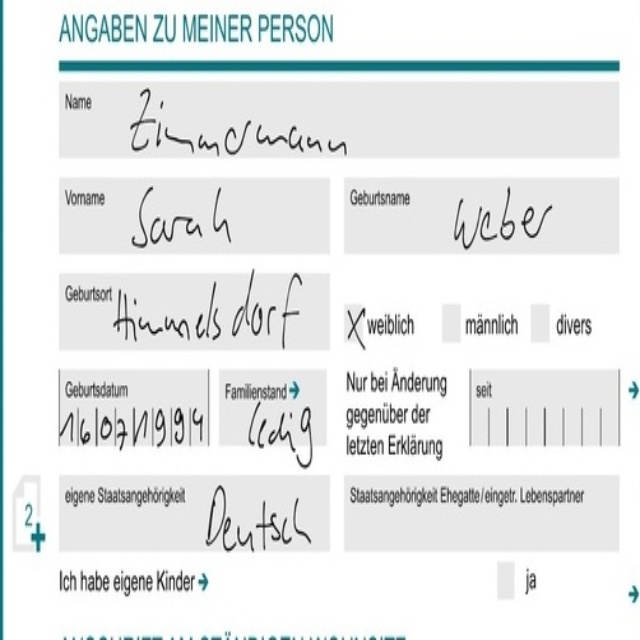 ANGABEN ZU MEINER PERSON
Name
Zimmermann
Vorname
Sarah
Geburtsname
Weber
Geburtsort
Himmelsdorf
X weiblich
männlich
divers
Geburtsdatum
16071994
Familienstand →
ledig
Nur bei Änderung
gegenüber der
letzten Erklärung
seit
eigene Staatsangehörigkeit
Deutsch
Staatsangehörigkeit Ehegatte / eingetr. Lebenspartner
2+
Ich habe eigene Kinder →
ja